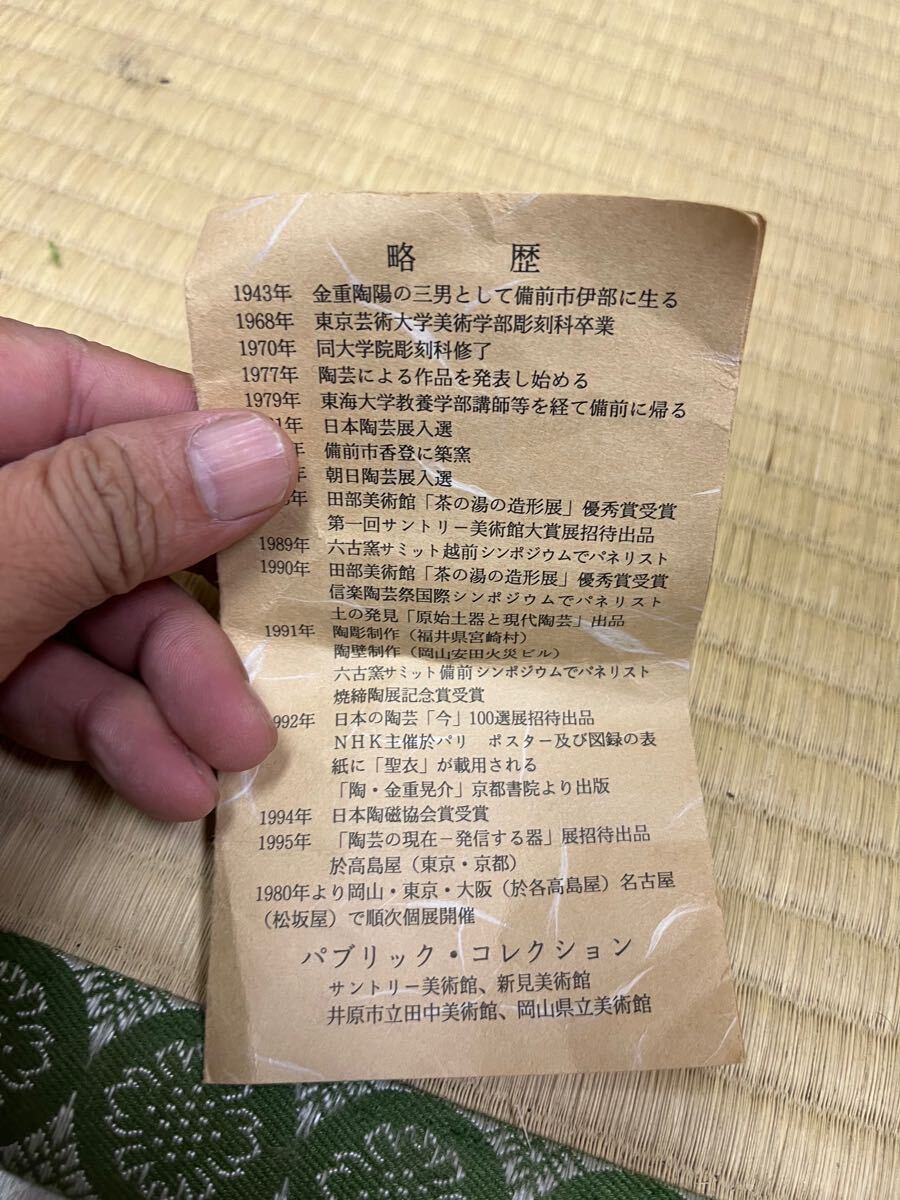 略歴
1943年 金重陶陽の三男として備前市伊部に生る
1968年 東京芸術大学美術学部彫刻科卒業
1970年 同大学院彫刻科修了
1977年 陶芸による作品を発表し始める
1979年 東海大学教養学部講師等を経て備前に帰る
1年 日本陶芸展入選
年 備前市香登に築窯
年 朝日陶芸展入選
年 田部美術館「茶の湯の造形展」優秀賞受賞
第一回サントリー美術館大賞展招待出品
1989年 六古窯サミット越前シンポジウムでパネリスト
1990年 田部美術館「茶の湯の造形展」優秀賞受賞
信楽陶芸祭国際シンポジウムでパネリスト
土の発見「原始土器と現代陶芸」出品
1991年 陶彫制作（福井県宮崎村）
陶壁制作（岡山安田火災ビル）
六古窯サミット備前シンポジウムでパネリスト
焼締陶展記念賞受賞
992年 日本の陶芸「今」100選展招待出品
NHK主催於パリ ポスター及び図録の表
紙に「聖衣」が載用される
「陶・金重晃介」京都書院より出版
1994年 日本陶磁協会賞受賞
1995年 「陶芸の現在－発信する器」展招待出品
於高島屋（東京・京都）
1980年より岡山・東京・大阪（於各高島屋）名古屋
（松坂屋）で順次個展開催
パブリック・コレクション
サントリー美術館、新見美術館
井原市立田中美術館、岡山県立美術館